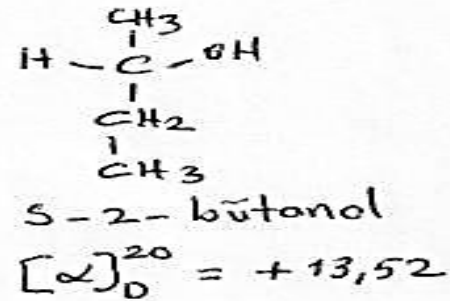 CH3
H - C - OH
CH2
CH3
S-2-bütanol
[α]D20 = +13,52